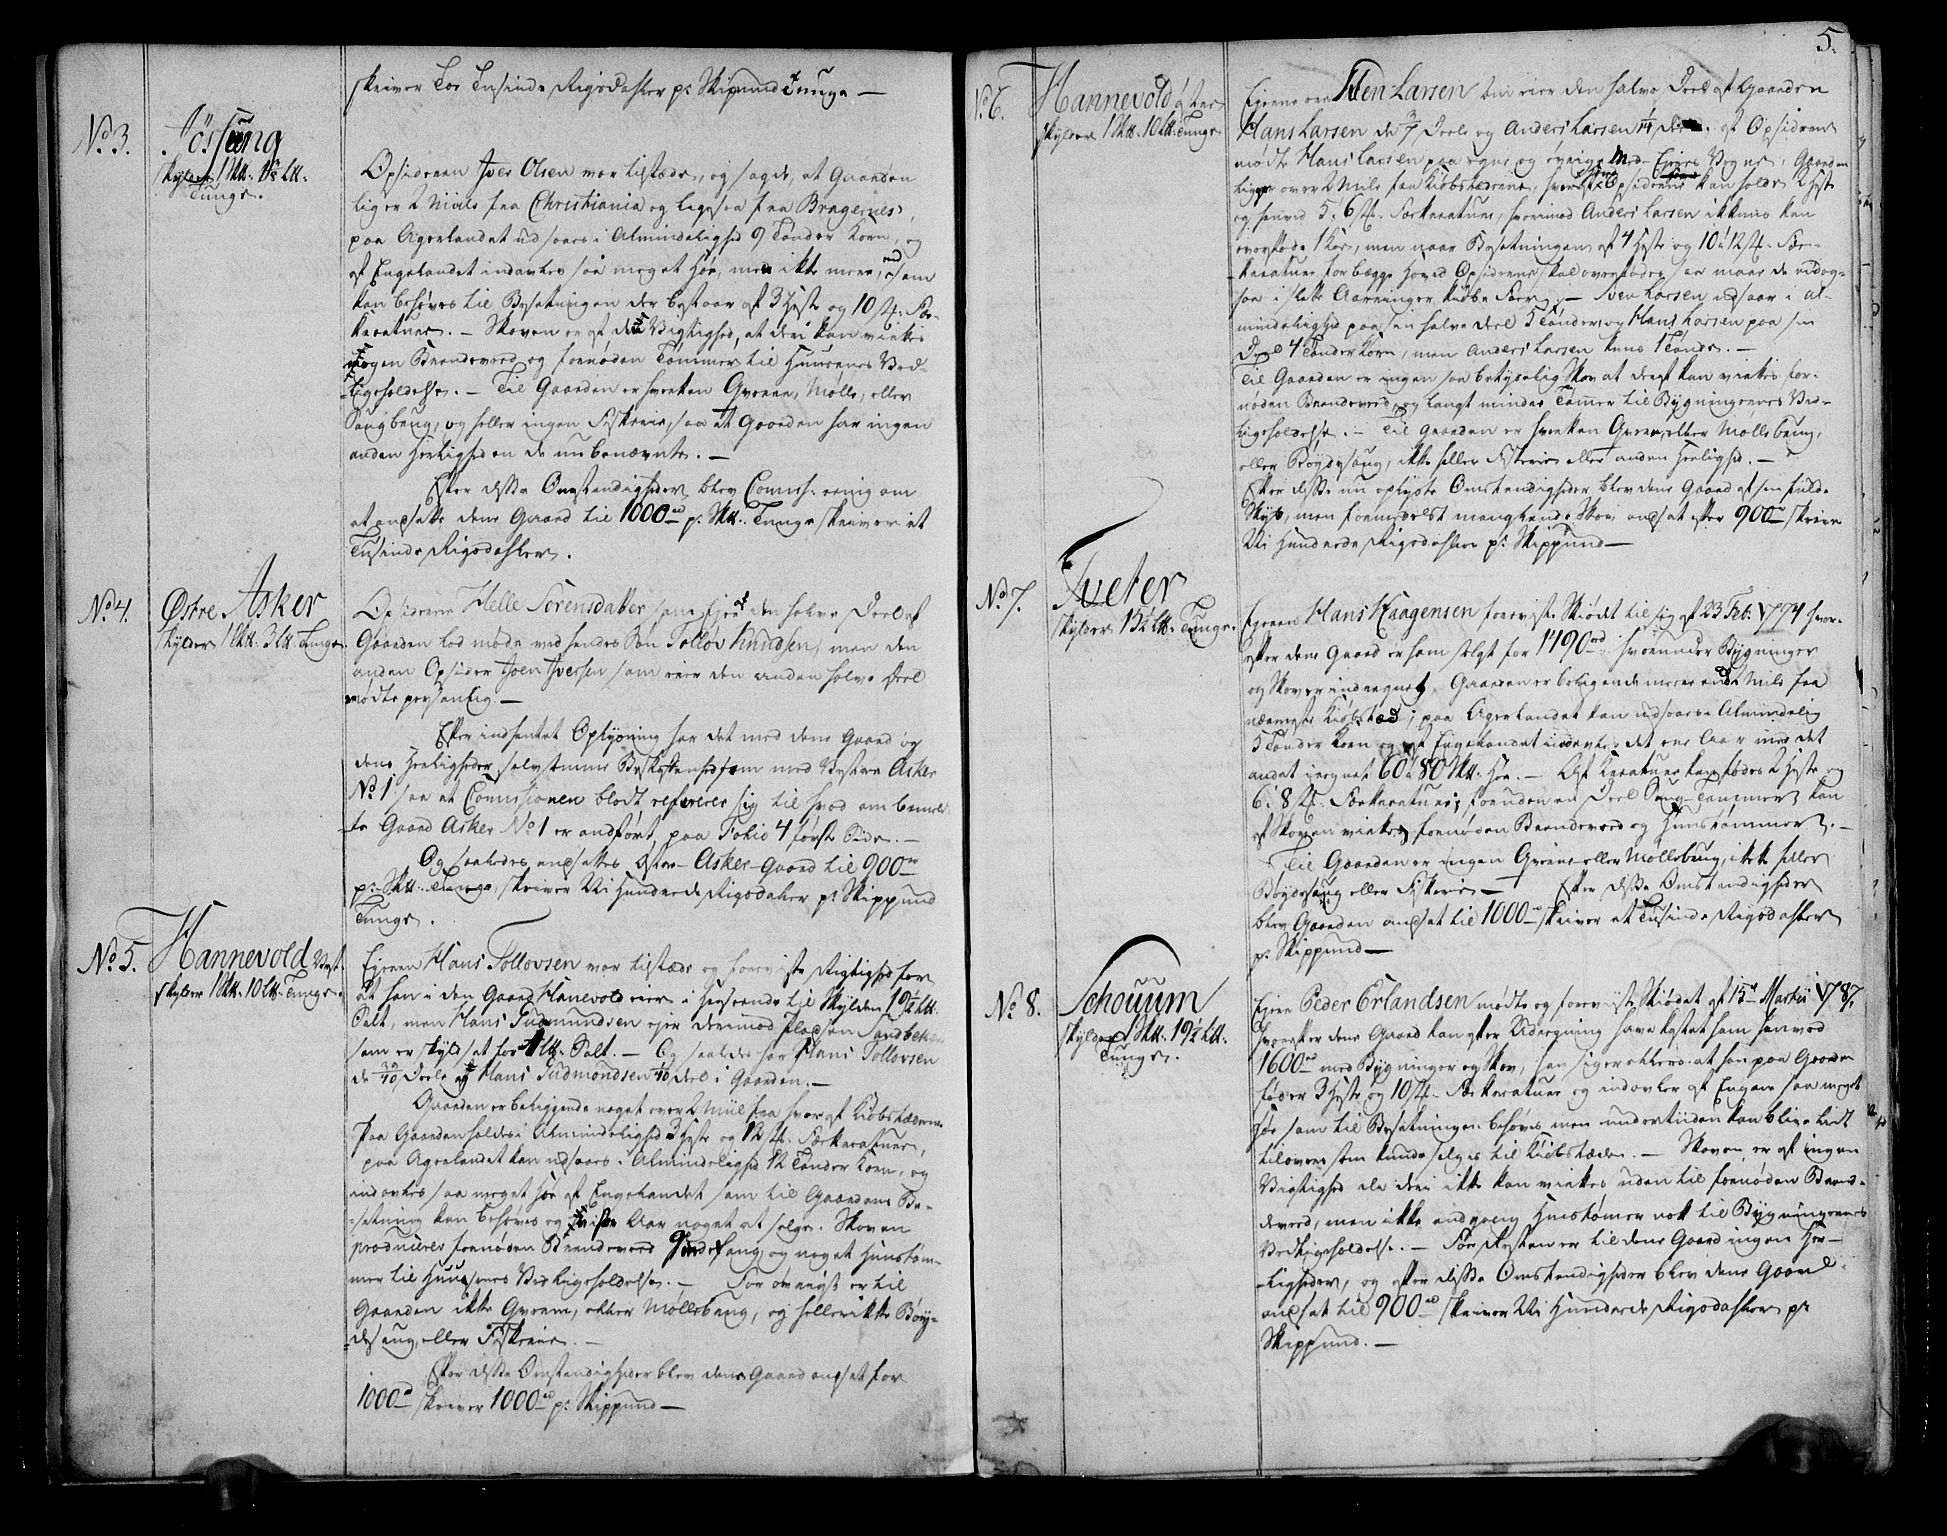 skriver Toe Tusinde Rigsdahler pr: Skipund Tunge —
No 3.
Jössung
skylder 1 Skk. 1½ Lk.
Tunge.
Opsidderen Iver Olsen var tilstæde, og sagde, at Gaarden
ligger 2 Miile fra Christiania og ligesaa fra Bragernes,
paa Agerlandet udsaaes i Almindelighed 9 Tönder Korn, og
af Engelandet indavles saa meget Höe, men ikke mere, end som
kan behöves til Besætningen der bestaar af 3 Heste og 10 st. Fæ-
Kreature. — Skoven er af den Vigtighed, at deri kan virkes
nogen Brændeved og fornöden Tömmer til Huusenes Ved-
ligeholdelse. — Til Gaarden er hverken Qværn, Mölle, eller
Saugbrug, og heller ingen Fiskerie, saa at Gaarden har ingen
anden Herlighed en de nu benævnte. —
Efter disse Omstændigheder blev Commiss: eenig om
at ansætte denne Gaard til 1000 rd pr Skk. Tunge skriver et
Tusinde Rigsdahler.
No 4.
Østre Asker
skylder 1 Skk. 3 Lk Tunge
Opsidderen Helle Sörensdatter som Ejer af den halve Deel af
Gaarden lod möde ved hendes Sön Tollöv Knudsen, men den
anden Opsidder Joen Iversen som eier den anden halve Deel
mödte personlig. —
Efter indhentet Oplysning har det med denne Gaard og
dens Herligheder selvsamme Beskaffenhed som med Vestre Asker
No 1 saa at Commissionen blodt refererer sig til hvad om bemeld-
te Gaard Asker No 1 er andfört, paa Folio 4 förste Side. —
Og saaledes ansættes Östre-Asker-Gaard til 900 rd
pr: Skk. Tunge, skriver Ni Hundrede Rigsdaler pr: Skippund
Tunge.
No 5.
Hannevold Vest.
skylder 1 Skk. 10 Lk. Tunge.
Ejeren Hans Tollovsen var tilstæde og foreviiste Rigtighed for
at han i den Gaard Hanevold eier i Henseende til Skylden 19½ Lk.
Salt, men Hans Gudmundsen ejer derimod Pladsen Sandbeken
som er skyldsat for ½ Lk. Salt. — Og saaledes har Hans Tollovsen
de 39/40 Deele og Hans Gudmondsen 1/40 Deel i Gaarden. —
Gaarden er beliggende noget over 2 Miil fra hver af Kiöbstæderne.
Paa Gaarden holdes i Almindelighed 3 Heste og 12 st. Fækreature,
paa Agerlandet kan udsaaes i Almindelighed 12 Tönder Korn, og
indavles saa meget Höe af Engelandet som til Gaardens Be-
sætning kan behöves og visse Aar noget at sælge. Skoven
producerer fornöden Brændeved Gierdefang og noget Huustöm-
mer til Huusenes Vedligeholdelse. — For övrigt er til
Gaarden ikke Qværn, eller Möllebrug, og heller ikke Böy-
desaug, eller Fiskerie. —
Efter disse Omstændigheder blev denne Gaard ansat for
1000 rd skriver 1000 rd pr: Skippund —
5.
No 6.
Hannevold öster
skylder 1 Skk. 10 Lk. Tunge
Ejerne ere Sven Larsen som eier den halve Deel af Gaarden
Hans Larsen de 3/7 Deele og Anders Larsen 1/14 Deel. af Opsidderne
mödte Hans Larsen paa egne og övrige Med Ejeres Vegne. Gaarden
ligger over 2 Miile fra Kiöbstæderne, hver af Opsidderne kan holde 2 Heste
og henved 5 á 6 st. Fækreature, hvorimod Anders Larsen ikkuns kan
overföde 1 Koe, men naar Besetningen af 4 Heste og 10 á 12 st. Fæe-
kreature for begge Hoved Opsiddere skal overfödes saa maae de endog-
saa i slette Aaringer kiöbe Foer. — Sven Larsen udsaar i al-
mindelighed paa sin halve Deel 5 Tönder, og Hans Larsen paa sin
Deel 4 Tönder Korn, men Anders Larsen kuns 1 Tönde. —
Til Gaarden er ingen saa betydelig Skov at deraf kan virkes for-
nöden Brændeved, og langt mindre Tömer til Bygningernes Ved-
ligeholdelse. — Til Gaarden er hverken Qværn, eller Möllebrug,
eller Böydesaug, ikke heller Fiskerie eller anden Herlighed. —
Efter disse nu oplyste Omstændigheder blev denne Gaard af sin fulde
Skyld, men formedelst manglende Skov ansat efter 900 rd skriver
Ni Hundrede Rigsdahler pr: Skippund —
No 7.
Tveter
skylder 13½ Lk. Tunge.
Ejeren Hans Haagensen foreviste Skiödet til sig af 23 Feb: 1774 hvor-
efter denne Gaard er ham solgt for 1190 rd: hvorunder Bygninger
og Skov er indregnet. Gaarden er beliggende mere end 2 Miile fra
nærmeste Kiöbstæd; paa Agerlandet kan udsaaes i Almindelig
5 Tönder Korn og af Engelandet indavles det ene Aar mod det
andet iregnet 60 á 80 Skk: Höe. — Af Kreature kan födes 2 Heste og
6 á 8 st. Fækreature; foruden en Deel Saug-Tömmer, kan
af Skoven virkes fornöden Brændeved og Huustömmer. —
Til Gaarden er ingen Qværn eller Möllebrug, ikke heller
Böydesaug eller Fiskerie — Efter disse Omstændigheder
blev Gaarden ansat til 1000 rd skriver et Tusinde Rigsdahler
pr: Skippund —
No 8.
Schouum
skylder 1 Skk. 19½ Lk.
Tunge.
Ejeren Peder Erlandsen mödte og foreviiste Skiödet af 15de Martii 1787,
hvorefter denne Gaard kan efter Udregning have kostet ham henved
1600 rd med Bygninger og Skov, han siger ellers at han paa Gaarden
föder 3 Heste og 10 st. Fækreature og indavler af Engene saa meget
Höe som til Besætningen behöves men undertiden kan blive lidt
tilovers som kunde selges til Kiöbstæden. — Skoven er af ingen
Vigtighed da deri ikke kan virkes uden til fornöden Brænd-
deved, men ikke endgang Huustömer nok til Bygningernes
Vedligeholdelse. — For Resten er til denne Gaard ingen Her-
ligheder, og efter disse Omstændigheder blev denne Gaard
ansat til 900 rd skriver Ni Hundrede Rigsdahler pr
Skippund. —